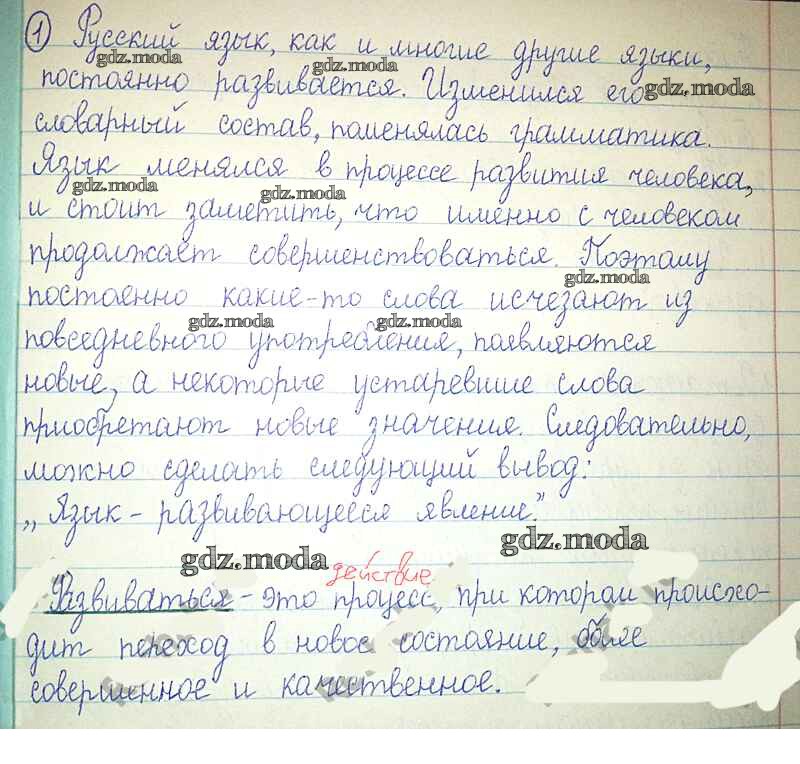 ① Русский язык, как и многие другие языки,
gdz.moda gdz.moda
постоянно развивается. Изменился его gdz.moda
словарный состав, поменялась грамматика.
Язык менялся в процессе развития человека,
gdz.moda gdz.moda
и стоит заметить, что именно с человеком
продолжает совершенствоваться. Поэтому
gdz.moda
постоенно какие-то слова исчезают из
gdz.moda gdz.moda
повседневного употребления, появляются
новые, а некоторые устаревшие слова
приобретают новые значения. Следовательно,
можно сделать следующий вывод:
„Язык - развивающееся явление."
gdz.moda gdz.moda
действие
Развиваться - это процесс, при котором происхо-
дит переход в новое состояние, более
совершенное и качественное.